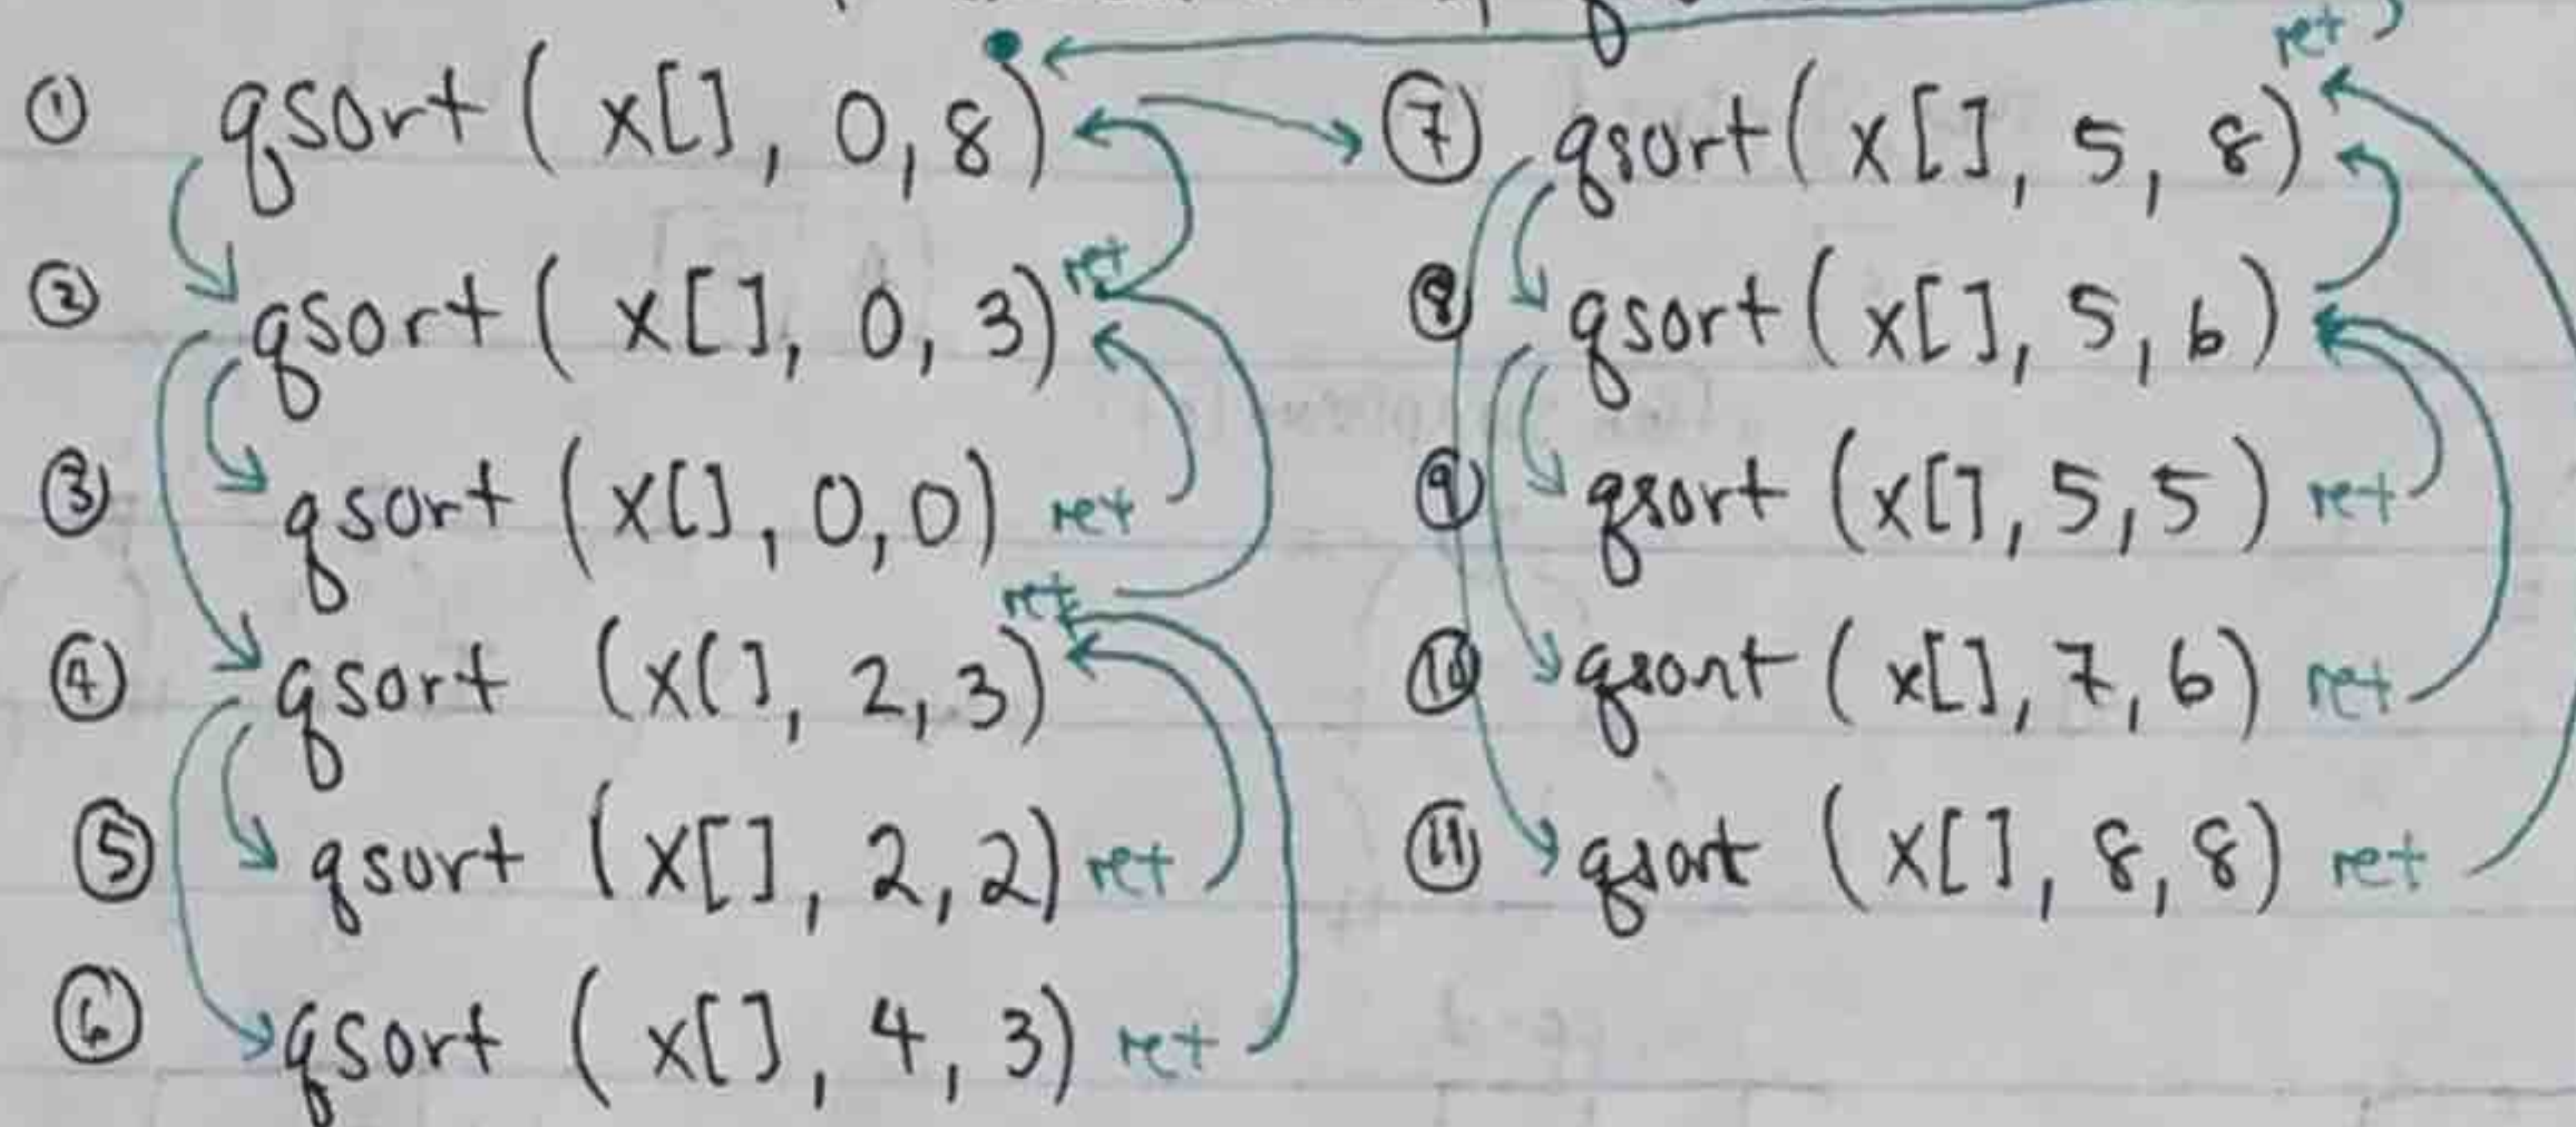 ① qsort ( x[], 0,8)
② qsort ( x[], 0, 3) ret
③ qsort (x[], 0,0) ret
④ qsort (x[], 2,3) ret
⑤ qsort (x[], 2,2) ret
⑥ qsort ( x[], 4, 3) ret
⑦ qsort( x[], 5, 8) ret
⑧ qsort( x[], 5, 6)
⑨ qsort (x[], 5,5) ret
⑩ qsort ( x[], 7, 6) ret
⑪ qsort (x[], 8,8) ret